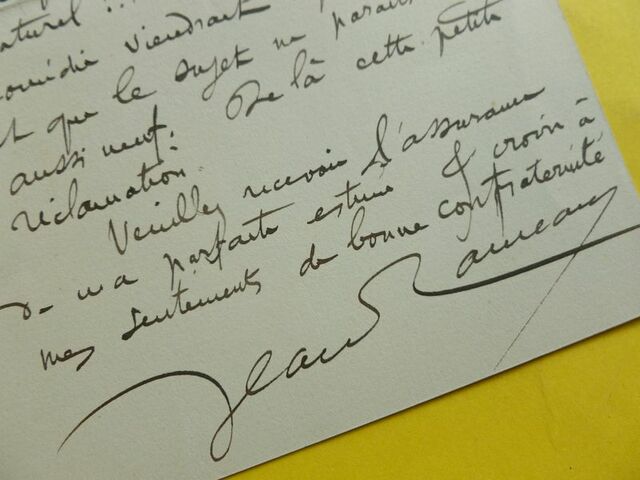 naturel !..
comédie viendrait
que le sujet ne parait
aussi neuf. De là cette petite
réclamation.
Veuillez recevoir l'assurance
de ma parfaite estime & croire à
mes sentements de bonne confraternité
Jean Rameau